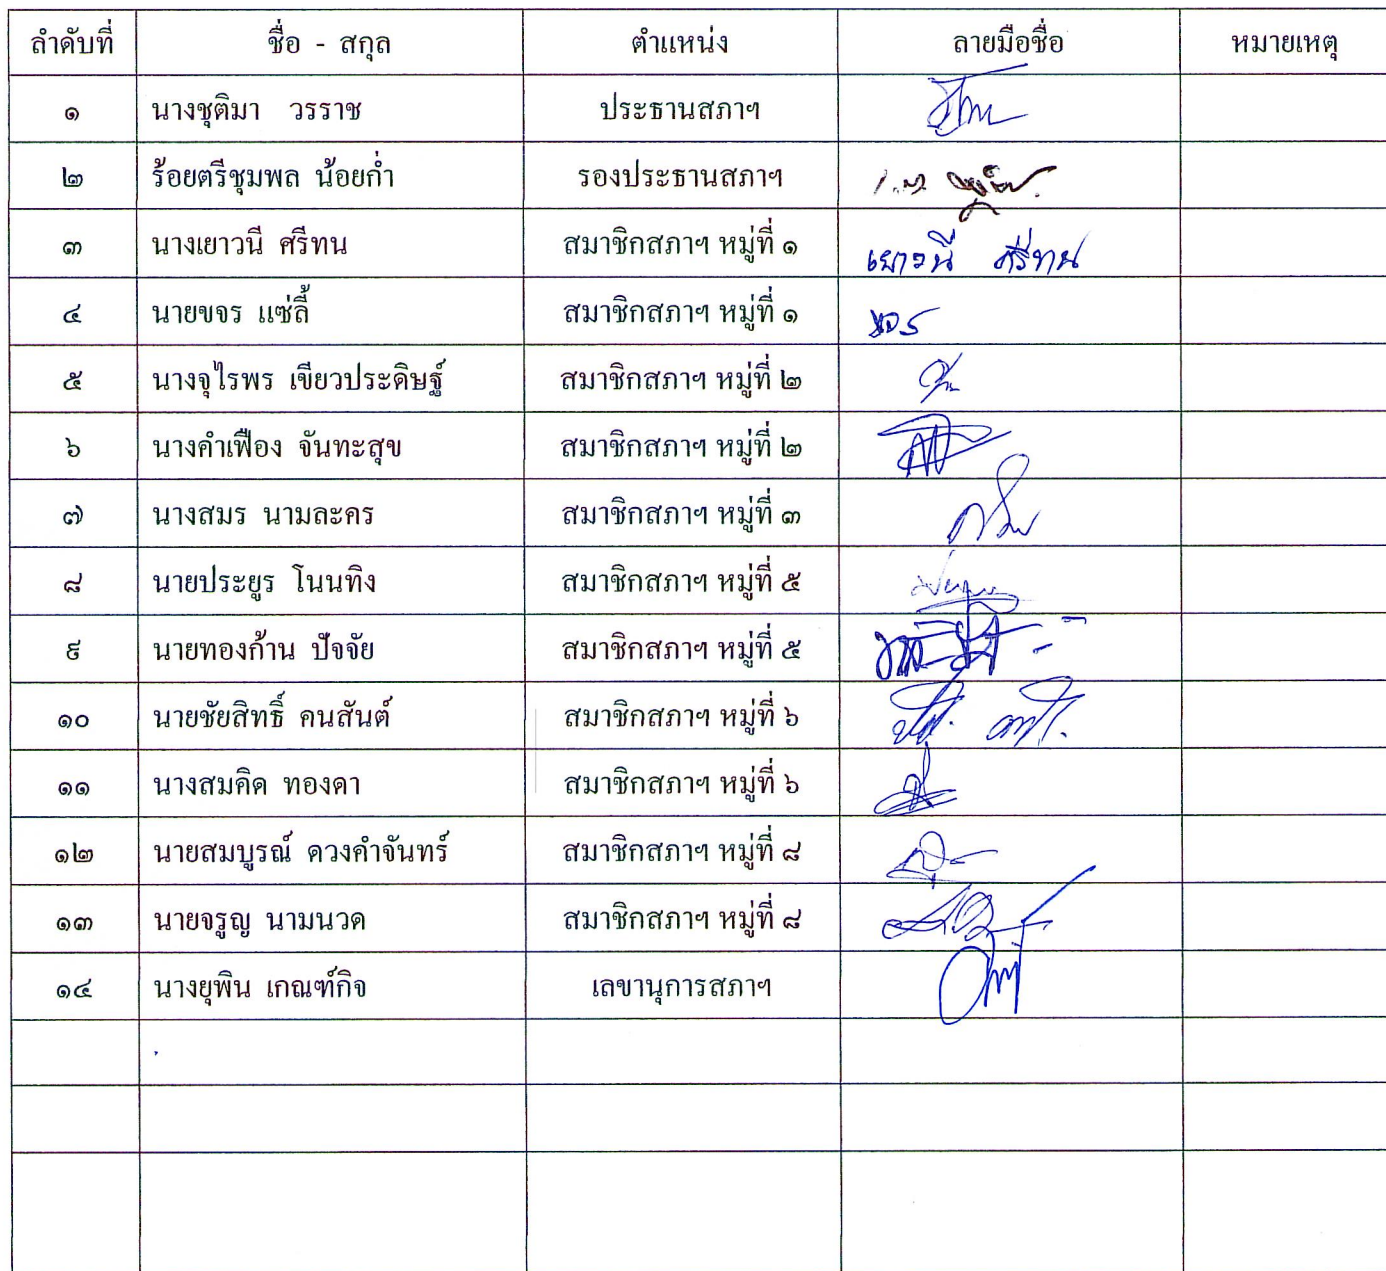 ลำดับที่ ชื่อ - สกุล ตำแหน่ง ลายมือชื่อ หมายเหตุ
๑ นางชุติมา วรราช ประธานสภาฯ
๒ ร้อยตรีชุมพล น้อยก่ำ รองประธานสภาฯ
๓ นางเยาวนี ศรีทน สมาชิกสภาฯ หมู่ที่ ๑ เยาวนี ศรีทน
๔ นายขจร แซ่ลี้ สมาชิกสภาฯ หมู่ที่ ๑ ขจร
๕ นางจุไรพร เขียวประดิษฐ์ สมาชิกสภาฯ หมู่ที่ ๒
๖ นางคำเฟือง จันทะสุข สมาชิกสภาฯ หมู่ที่ ๒
๗ นางสมร นามละคร สมาชิกสภาฯ หมู่ที่ ๓
๘ นายประยูร โนนทิง สมาชิกสภาฯ หมู่ที่ ๕
๙ นายทองก้าน ปัจจัย สมาชิกสภาฯ หมู่ที่ ๕
๑๐ นายชัยสิทธิ์ คนสันต์ สมาชิกสภาฯ หมู่ที่ ๖
๑๑ นางสมคิด ทองดา สมาชิกสภาฯ หมู่ที่ ๖
๑๒ นายสมบูรณ์ ดวงคำจันทร์ สมาชิกสภาฯ หมู่ที่ ๘
๑๓ นายจรูญ นามนวด สมาชิกสภาฯ หมู่ที่ ๘
๑๔ นางยุพิน เกณฑ์กิจ เลขานุการสภาฯ